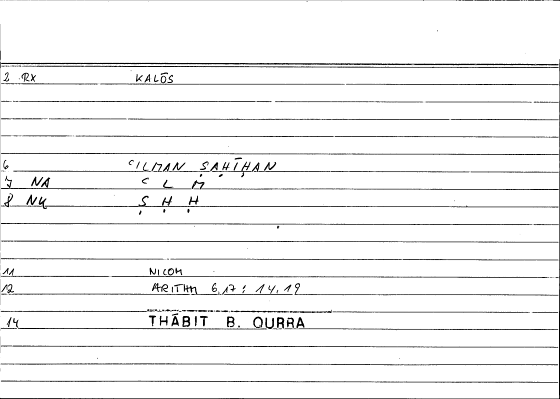 2 RX KALŌS
6 ʿILMAN ṢAḤĪḤAN
7 NA ʿ L M
8 NK Ṣ Ḥ Ḥ
11 NICOM
12 ARITHM 6,17 : 14,19
14 THĀBIT B. QURRA